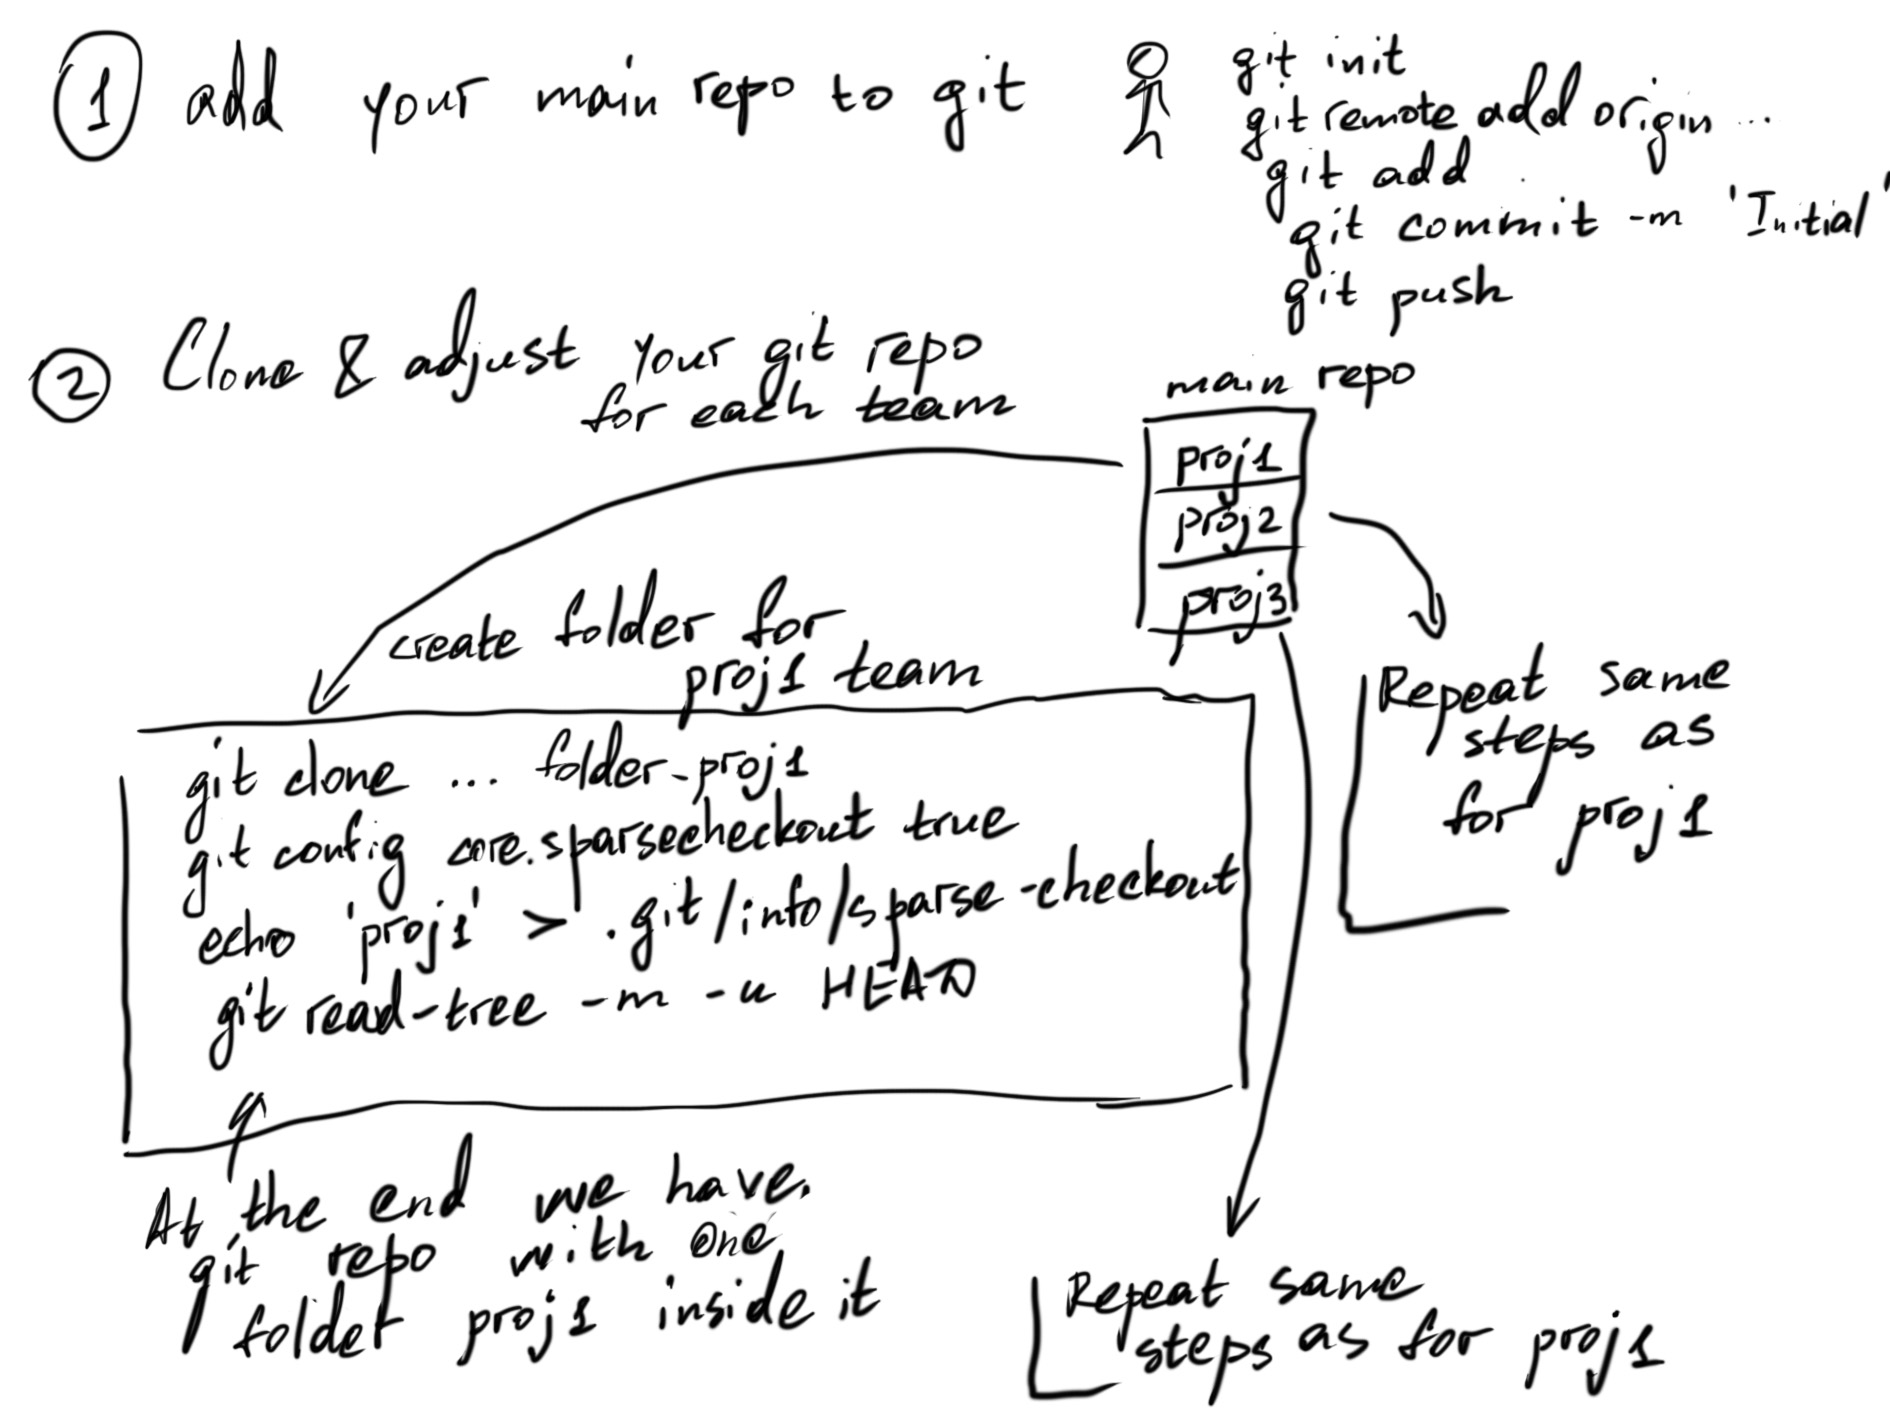 1 add your main repo to git
git init
git remote add origin ...
git add .
git commit -m 'Initial'
git push
2 Clone & adjust your git repo
for each team
main repo
proj1
proj2
proj3
create folder for
proj1 team
git clone ... folder-proj1
git config core.sparsecheckout true
echo 'proj1' > .git/info/sparse-checkout
git read-tree -m -u HEAD
At the end we have.
git repo with one
folder proj1 inside it
Repeat same
steps as
for proj1
Repeat same
steps as for proj1